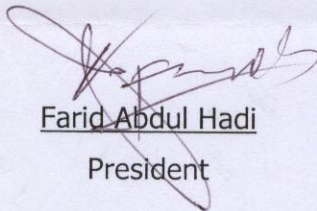 Farid Abdul Hadi
President